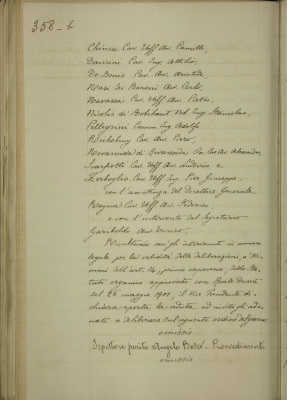 358-6
Chinea Cav. Uff. Avv. Camillo,
Cav. Ing. Attilio,
De Benis Cav. Avv. Aristide
Masi dei Baroni Avv. Carlo,
Cav. Uff. Avv. Pietro,
Nicolis di Robilant Nob. Ing. Stanislao,
Pellegrini Comm. Ing. Adolfo
Cav. Avv. Piero,
di Cav. Avv. Alessandro,
Scarfiotti Cav. Uff. Avv. Lodovico e
Zerboglio Cav. Uff. Ing. Pier Giuseppe,
con l'assistenza del Direttore Generale
Cav. Uff. Avv. Federico
e con l'intervento del Segretario
Garibaldi Avv. Enrico.
gli intervenuti in numero
legale per la validità delle deliberazioni, a ter-
mini dell'art. 16, primo capoverso, dello Sta-
tuto organico approvato con Reale Decreto
del 26 maggio 1901, il Vice Presidente di-
chiara aperta la seduta ed invita gli adu-
nati a deliberare sul seguente ordine del giorno
omissis
Ispettore perito Angelo Provvedimenti
omissis